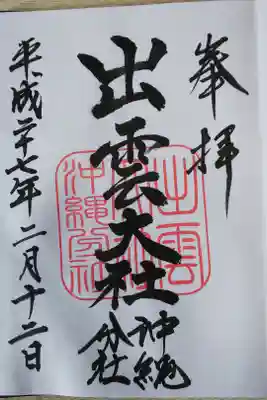 奉拝
出雲大社
沖縄
分社
平成二十七年二月十二日
出雲
沖縄分社